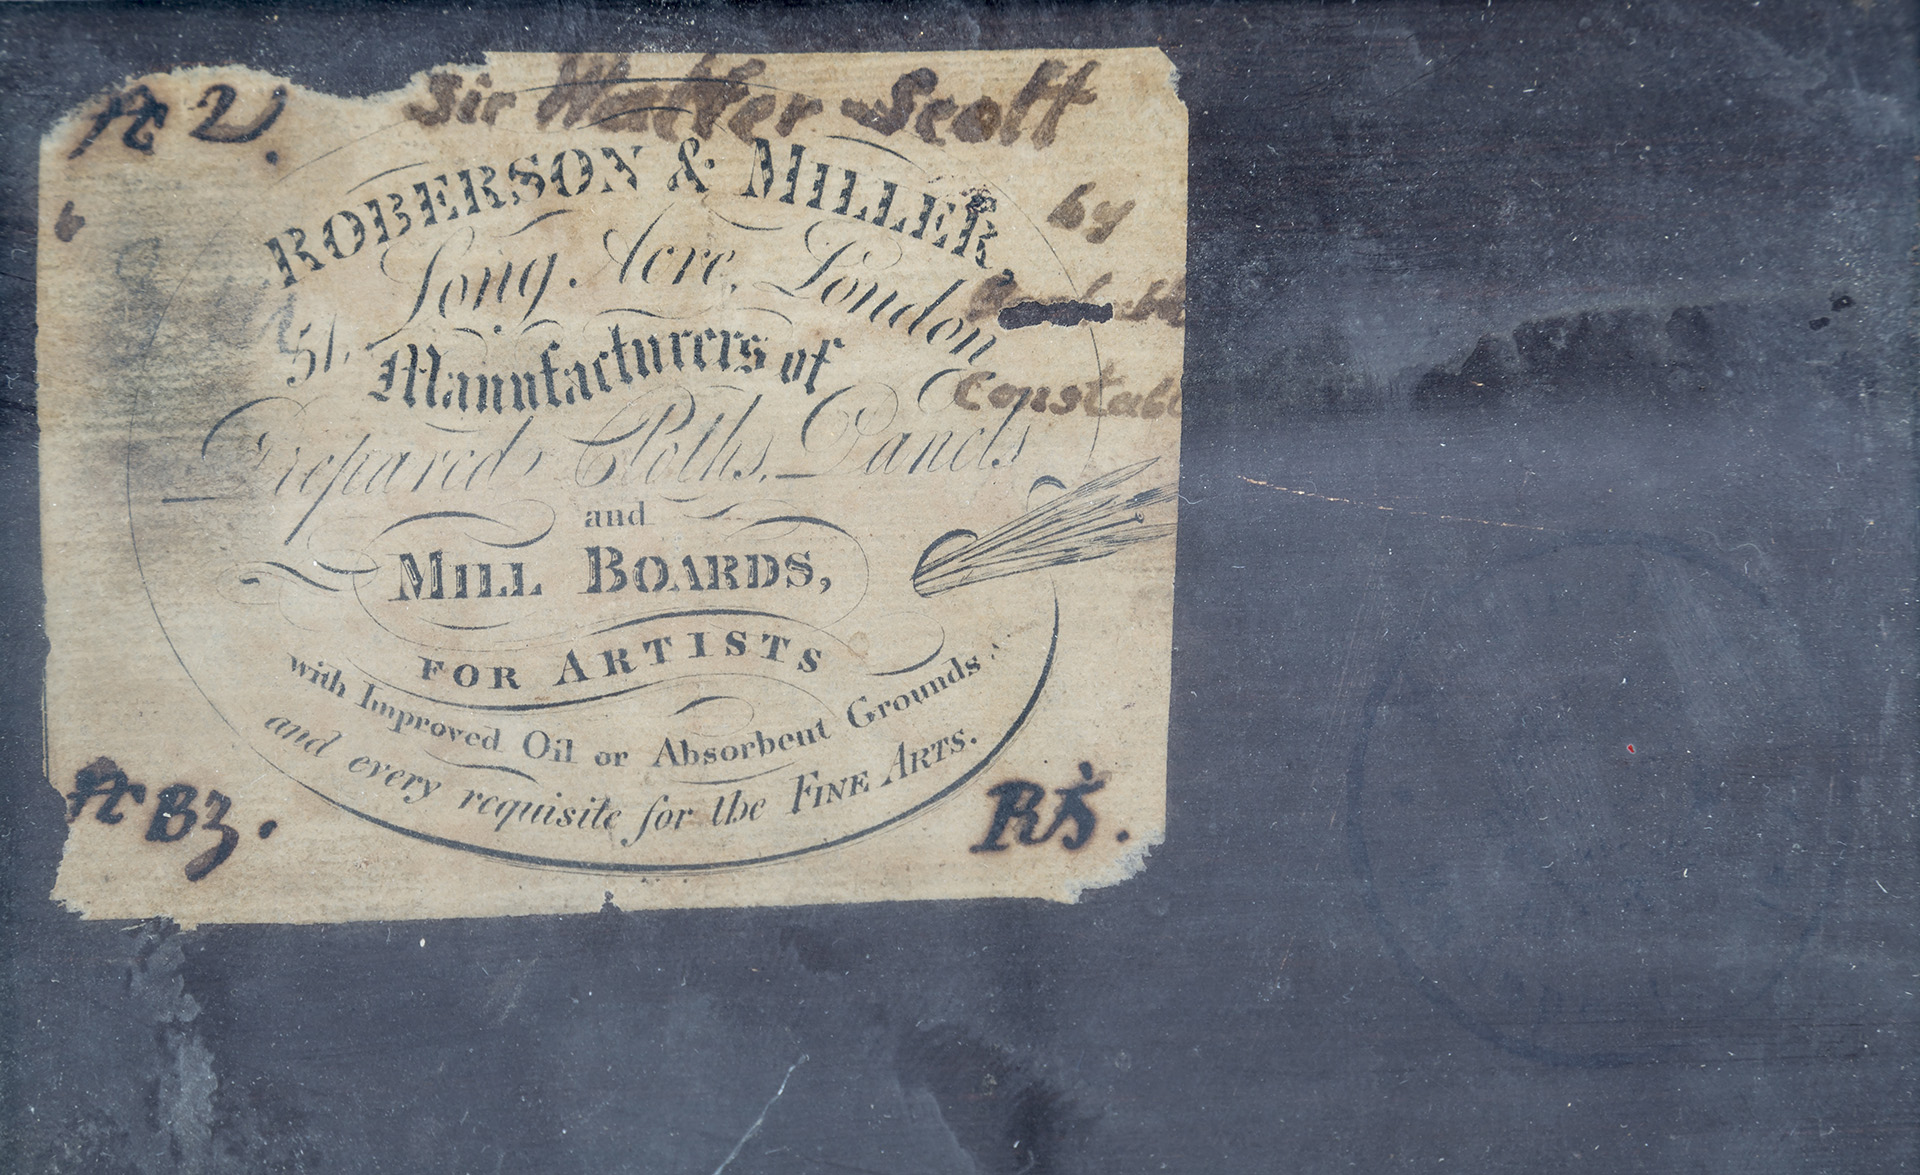 Sir Walter Scott
by
Constabl
ROBERSON & MILLER,
51, Long Acre, London
Manufacturers of
Prepared Cloths, Panels
and
MILL BOARDS,
FOR ARTISTS
with Improved Oil or Absorbent Grounds
and every requisite for the FINE ARTS.